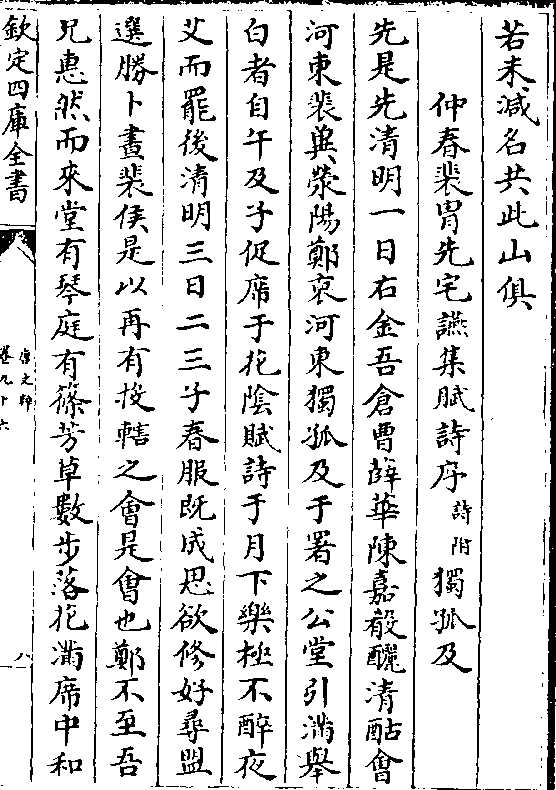 若未滅名共此山俱
仲春裴胄先宅讌集賦詩序 詩附 獨孤及
先是先清明一日右金吾倉曹薛華陳嘉殽釃清酤會
河東裴兾滎陽鄭裒河東獨孤及于署之公堂引滿舉
白者自午及子促席于花陰賦詩于月下樂極不醉夜
艾而罷後清明三日二三子春服既成思欲修好尋盟
選勝卜晝裴侯是以再有投轄之會是會也鄭不至吾
兄惠然而來堂有琴庭有篠芳草數步落花滿席中和
欽定四庫全書
唐文粹
卷九十六
八